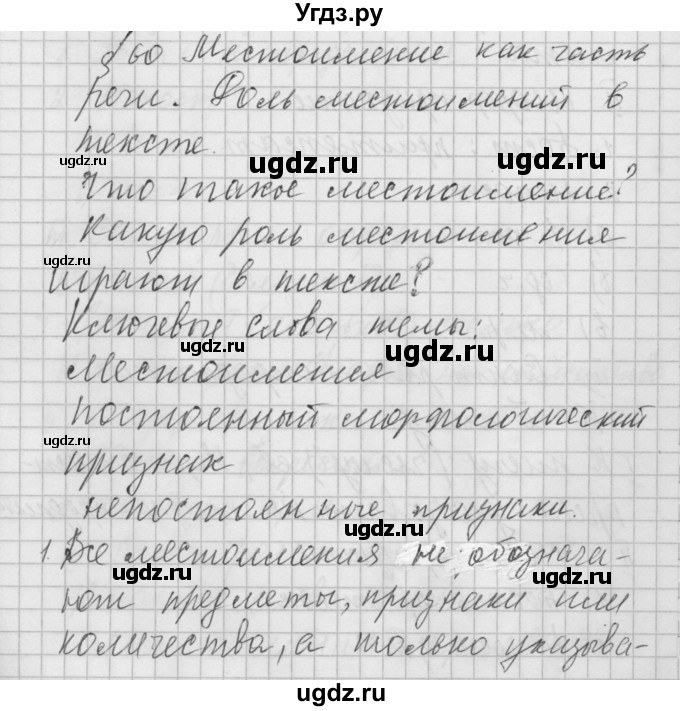 Угдз.ру
§60 Местоимение как часть
речи. Роль местоимений в
тексте.
Что такое местоимение?
Какую роль местоимения
играют в тексте?
Ключевые слова темы:
Местоимения
постоянный морфологический
признак
непостоянные признаки.
1. Все местоимения не обознача-
ют предметы, признаки или
количества, а только указыва-
ugdz.ru